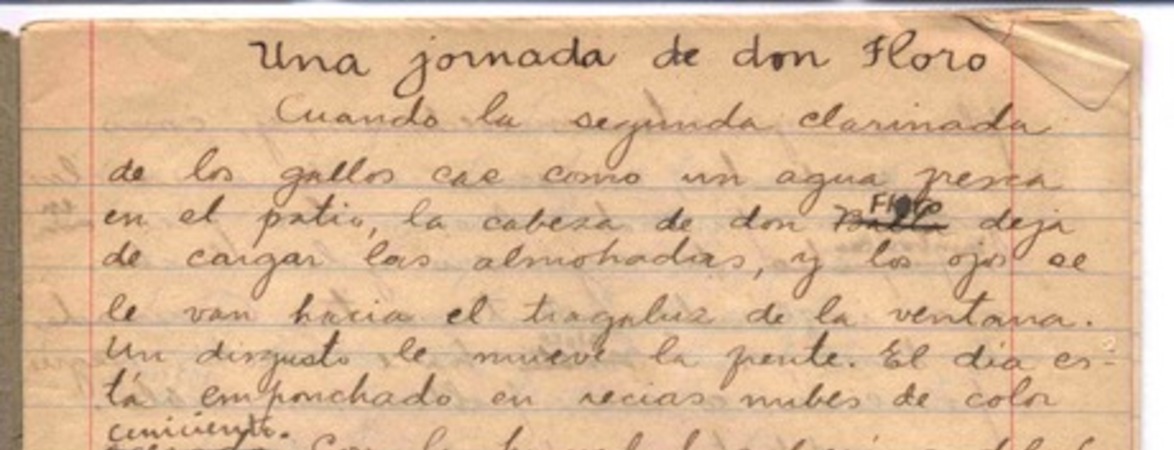 Una jornada de don Floro
Cuando la segunda clarinada
de los gallos cae como un agua fresca
en el patio, la cabeza de don Floro deja
de cargar las almohadas, y los ojos se
le van hacia el tragaluz de la ventana.
Un disgusto le mueve la frente. El día es-
tá emponchado en recias nubes de color
ceniciento.